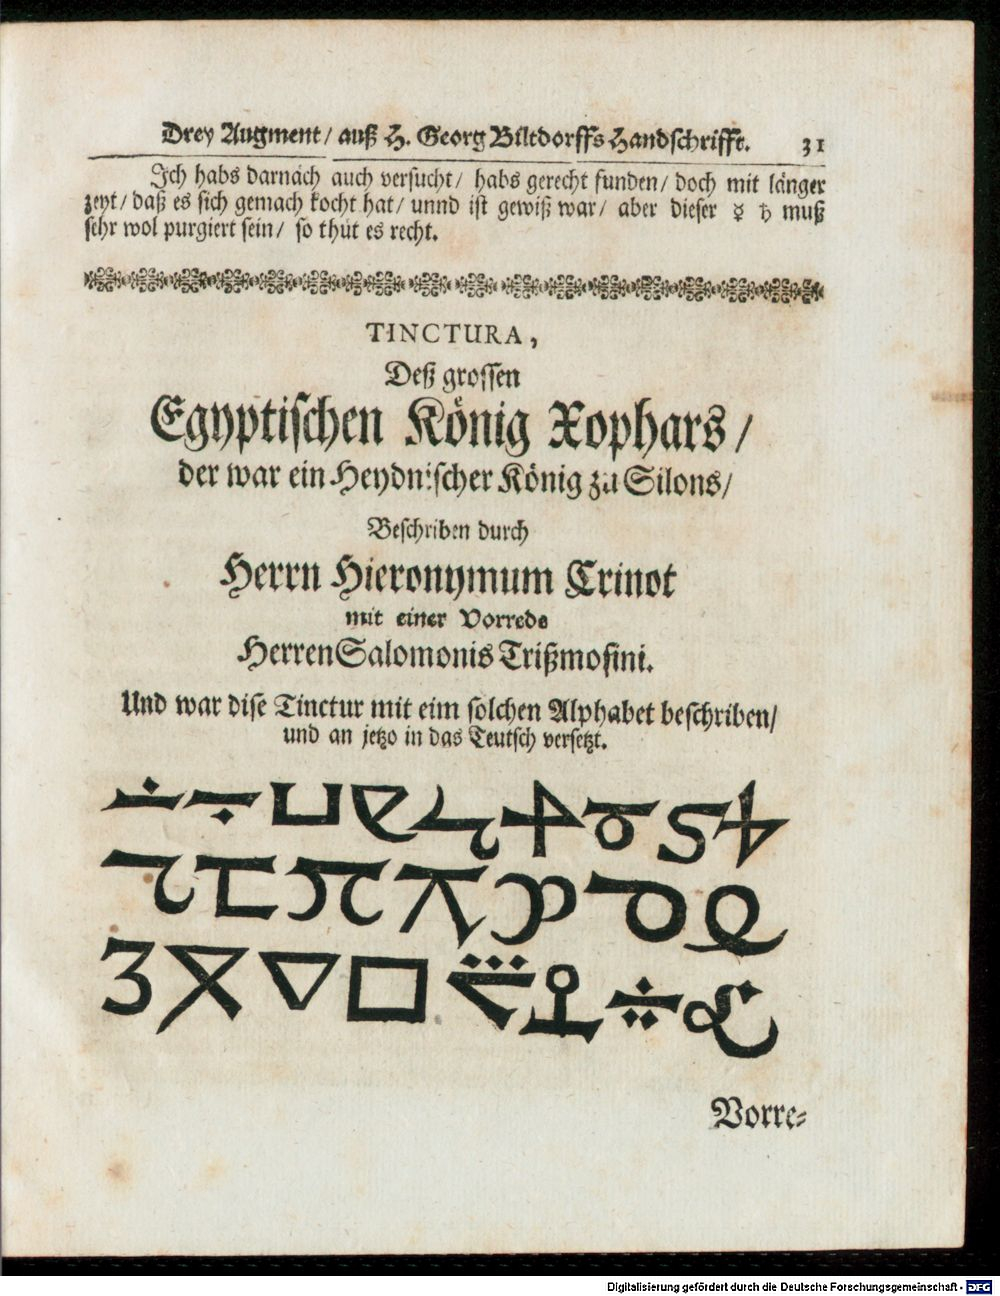 Drey Augment/ auß H. Georg Biltdorffs Handschrifft. 31
Ich habs darnach auch versucht/ habs gerecht funden/ doch mit länger
zeyt/ daß es sich gemach kocht hat/ unnd ist gewiß war/ aber dieser ☿ ♄ muß
sehr wol purgiert sein/ so thut es recht.
TINCTURA,
Deß grossen
Egyptischen König Xophars/
der war ein Heydnischer König zu Silons/
Beschriben durch
Herrn Hieronymum Crinot
mit einer Vorrede
Herren Salomonis Trißmosini.
Und war dise Tinctur mit eim solchen Alphabet beschriben/
und an jetzo in das Teutsch versetzt.
Vorre-
Digitalisierung gefördert durch die Deutsche Forschungsgemeinschaft - DFG